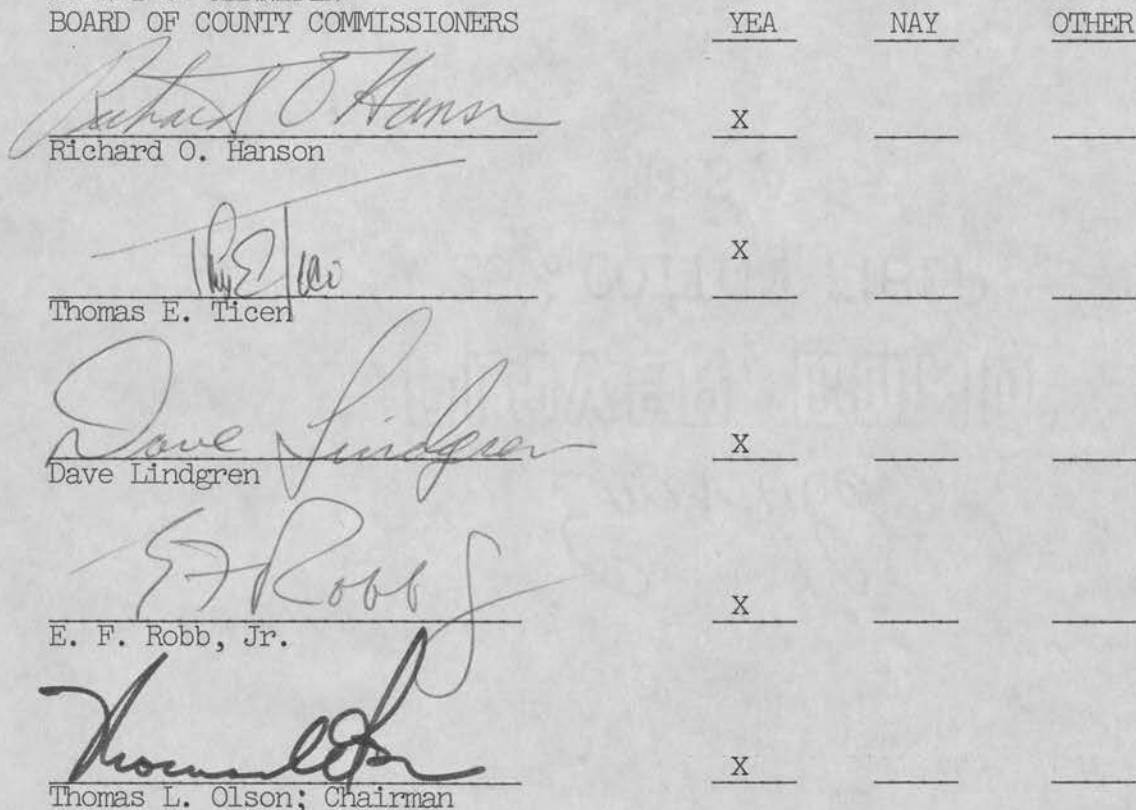 BOARD OF COUNTY COMMISSIONERS YEA NAY OTHER
Richard O Hanson X
Richard O. Hanson
X
Thomas E. Ticen
Dave Lindgren X
Dave Lindgren
E F Robb Jr X
E. F. Robb, Jr.
X
Thomas L. Olson; Chairman